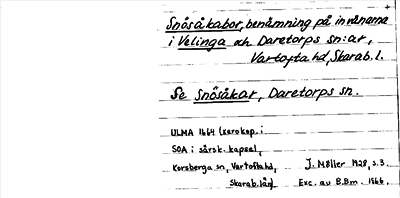 Snösåkabor, benämning på invånarna
i Velinga och Daretorps sn:ar,
Vartofta hd, Skarab. l.
Se Snösåkar, Daretorps sn.
ULMA 1664 (xerokop. i
SOA i särsk. kapsel,
Korsberga sn, Vartofta hd, J. Möller 1928, s. 3.
Skarab. län) Exc. av B.Bm. 1966.